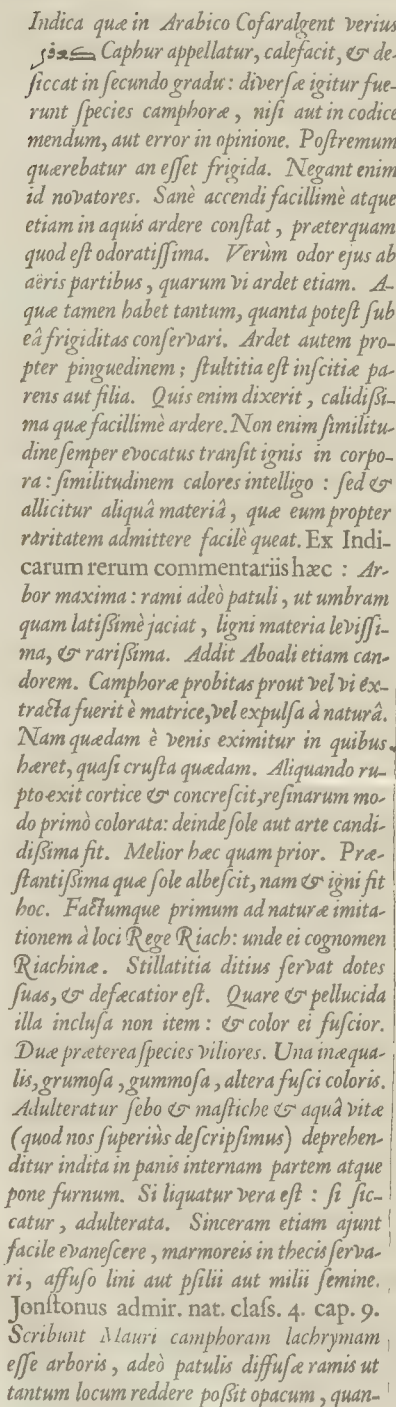 Indica quæ in Arabico Cofaralgent verius
Caphur appellatur, calefacit, & de-
ſiccat in ſecundo gradu: diverſæ igitur fue-
runt ſpecies camphoræ, niſi aut in codice
mendum, aut error in opinione. Poſtremum
quærebatur an eſſet frigida. Negant enim
id novatores. Sanè accendi facillimè atque
etiam in aquis ardere conſtat, præterquam
quod eſt odoratiſſima. Verùm odor ejus ab
aëris partibus, quarum vi ardet etiam. A-
quæ tamen habet tantum, quanta poteſt ſub
eâ frigiditas conſervari. Ardet autem pro-
pter pinguedinem; ſtultitia eſt inſcitiæ pa-
rens aut filia. Quis enim dixerit, calidißi-
ma quæ facillimè ardere. Non enim ſimilitu-
dine ſemper evocatus tranſit ignis in corpo-
ra: ſimilitudinem calores intelligo: ſed &
allicitur aliquâ materiâ, quæ eum propter
raritatem admittere facilè queat. Ex Indi-
carum rerum commentariis hæc: Ar-
bor maxima: rami adeò patuli, ut umbram
quam latißimè jaciat, ligni materia leviſſi-
ma, & rarißima. Addit Aboali etiam can-
dorem. Camphoræ probitas prout vel vi ex-
tracta fuerit è matrice, vel expulſa à naturâ.
Nam quædam è venis eximitur in quibus
hæret, quaſi cruſta quædam. Aliquando ru-
pto exit cortice & concreſcit, reſinarum mo-
do primò colorata: deinde ſole aut arte candi-
dißima fit. Melior hæc quam prior. Præ-
ſtantißima quæ ſole albeſcit, nam & igni fit
hoc. Factumque primum ad naturæ imita-
tionem à loci Rege Riach: unde ei cognomen
Riachinæ. Stillatitia ditius ſervat dotes
ſuas, & defæcatior eſt. Quare & pellucida
illa incluſa non item: & color ei fuſcior.
Duæ præterea ſpecies viliores. Una inæqua-
lis, grumoſa, gummoſa, altera fuſci coloris.
Adulteratur ſebo & maſtiche & aquâ vitæ
(quod nos ſuperiùs deſcripſimus) deprehen-
ditur indita in panis internam partem atque
pone furnum. Si liquatur vera eſt: ſi ſic-
catur, adulterata. Sinceram etiam ajunt
facile evaneſcere, marmoreis in thecis ſerva-
ri, affuſo lini aut pſilii aut milii ſemine.
Jonſtonus admir. nat. claſs. 4. cap. 9.
Scribunt Mauri camphoram lachrymam
eſſe arboris, adeò patulis diffuſæ ramis ut
tantum locum reddere poßit opacum, quan-